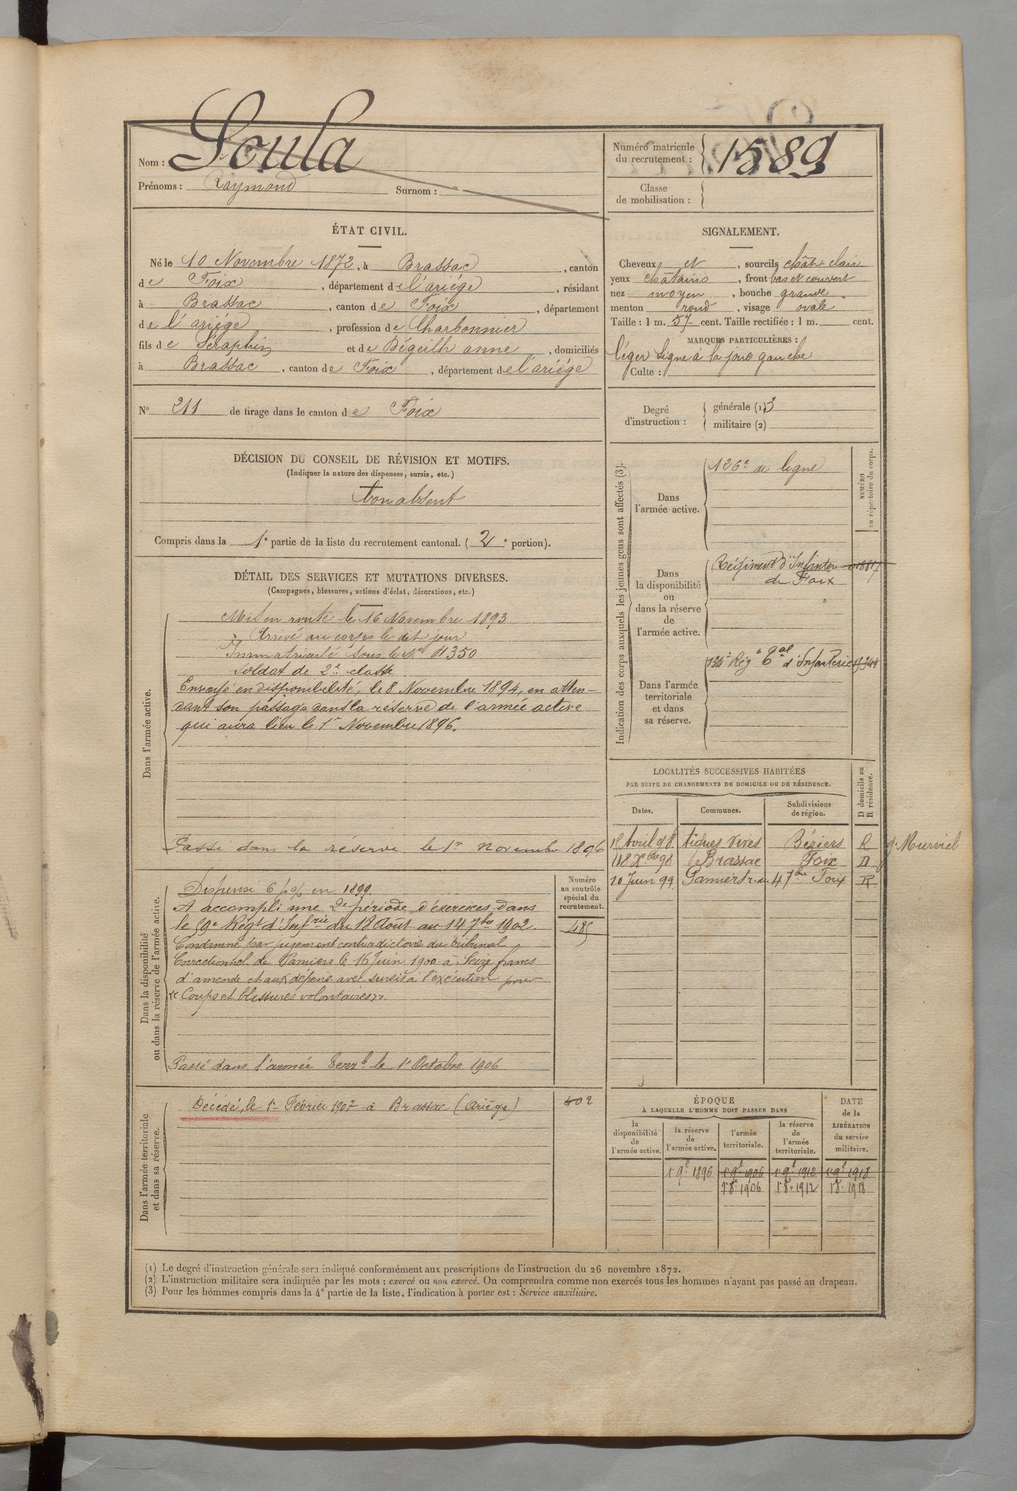 Nom : Soula
Prénoms : Raymond Surnom :
Numéro matricule du recrutement : 1589
Classe de mobilisation :
ÉTAT CIVIL.
Né le 10 Novembre 1872, à Brassac, canton
de Foix, département de l'ariège, résidant
à Brassac, canton de Foix, département
de l'ariège, profession de Charbonnier
fils de Séraphin et de Béguilh anne, domiciliés
à Brassac, canton de Foix, département de l'ariège
N° 211 de tirage dans le canton de Foix
SIGNALEMENT.
Cheveux et, sourcils chât. clair
yeux châtains, front bas et couvert
nez moyen, bouche grande
menton rond, visage ovale
Taille : 1 m. 57 cent. Taille rectifiée : 1 m. cent.
MARQUES PARTICULIÈRES :
léger signe à la joue gauche
Culte :
Degré d'instruction : générale (1) 3
militaire (2)
DÉCISION DU CONSEIL DE RÉVISION ET MOTIFS.
(Indiquer la nature des dispenses, sursis, etc.)
bon absent
Compris dans la 1e partie de la liste du recrutement cantonal. (2e portion).
DÉTAIL DES SERVICES ET MUTATIONS DIVERSES.
(Campagnes, blessures, actions d'éclat, décorations, etc.)
Dans l'armée active.
Mis en route le 16 Novembre 1893
Arrivé au corps le dit jour
Immatriculé sous le N° 4350
Soldat de 2e classe
Envoyé en disponibilité, le 8 Novembre 1894, en atten-
dant son passage dans la réserve de l'armée active
qui aura lieu le 1er Novembre 1896.
Passé dans la réserve le 1er novembre 1896
Indication des corps auxquels les jeunes gens sont affectés (3).
NUMÉRO au répertoire du corps.
Dans l'armée active.
126e de ligne
Dans la disponibilité ou dans la réserve de l'armée active.
Régiment d'Infanter
de Foix
Dans l'armée territoriale et dans sa réserve.
134e Régt Tal d'Infanterie
LOCALITÉS SUCCESSIVES HABITÉES
PAR SUITE DE CHANGEMENTS DE DOMICILE OU DE RÉSIDENCE.
Dates. Communes. Subdivisions de région. D domicile ou R résidence.
18 Avril 98 Aigues Vives Béziers R
18 Xbre 98 Brassac Foix D
20 Juin 99 Pamiers Foix R
Dans la disponibilité ou dans la réserve de l'armée active.
Numéro au contrôle spécial du recrutement.
485
Dispensé en 1899
A accompli une 2e période d'exercices dans
le 59e Régt d'Infrie du 18 Août au 14 7bre 1902.
Condamné par jugement contradictoire du tribunal
Correctionnel de Pamiers le 16 Juin 1900 à Seize francs
d'amende et aux dépens avec sursis à l'exécution pour
"Coups et blessures volontaires".
Passé dans l'armée Terrle le 1er Octobre 1906
Dans l'armée territoriale et dans sa réserve.
Décédé, le 1er Février 1907 à Brassac (Ariège)
402
ÉPOQUE
À LAQUELLE L'HOMME DOIT PASSER DANS
la disponibilité de l'armée active. la réserve de l'armée active. l'armée territoriale. la réserve de l'armée territoriale.
DATE de la LIBÉRATION du service militaire.
1 9e 1896 1 9e 1906 1 9e 1912 1 9e 1918
1 8e 1906 1 8e 1912 1 8e 1918
(1) Le degré d'instruction générale sera indiqué conformément aux prescriptions de l'instruction du 26 novembre 1872.
(2) L'instruction militaire sera indiquée par les mots : exercé ou non exercé. On comprendra comme non exercés tous les hommes n'ayant pas passé au drapeau.
(3) Pour les hommes compris dans la 4e partie de la liste, l'indication à porter est : Service auxiliaire.